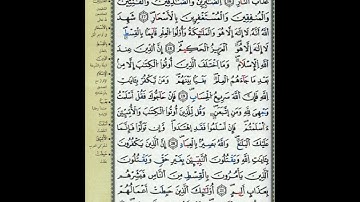 عَذَابَ ٱلنَّارِ ۝ ٱلصَّـٰبِرِينَ وَٱلصَّـٰدِقِينَ وَٱلْقَـٰنِتِينَ
وَٱلْمُنفِقِينَ وَٱلْمُسْتَغْفِرِينَ بِٱلْأَسْحَارِ ۝ شَهِدَ
لَآ إِلَـٰهَ إِلَّا هُوَ وَٱلْمَلَـٰٓئِكَةُ وَأُو۟لُوا۟ ٱلْعِلْمِ قَآئِمًۢا بِٱلْقِسْطِ
لَآ إِلَـٰهَ إِلَّا هُوَ ٱلْعَزِيزُ ٱلْحَكِيمُ ۝ إِنَّ ٱلدِّينَ عِندَ
ٱلْإِسْلَـٰمُ وَمَا ٱخْتَلَفَ ٱلَّذِينَ أُوتُوا۟ ٱلْكِتَـٰبَ إِلَّا مِنۢ
بَعْدِ مَا جَآءَهُمُ ٱلْعِلْمُ بَغْيًۢا بَيْنَهُمْ وَمَن يَكْفُرْ بِـَٔايَـٰتِ
ٱللَّهِ فَإِنَّ ٱللَّهَ سَرِيعُ ٱلْحِسَابِ ۝ فَإِنْ حَآجُّوكَ فَقُلْ أَسْلَمْتُ
وَجْهِىَ لِلَّهِ وَمَنِ ٱتَّبَعَنِ وَقُل لِّلَّذِينَ أُوتُوا۟ ٱلْكِتَـٰبَ وَٱلْأُمِّيِّـۧنَ
ءَأَسْلَمْتُمْ فَإِنْ أَسْلَمُوا۟ فَقَدِ ٱهْتَدَوا۟ وَّإِن تَوَلَّوْا۟ فَإِنَّمَا
عَلَيْكَ ٱلْبَلَـٰغُ وَٱللَّهُ بَصِيرٌۢ بِٱلْعِبَادِ ۝ إِنَّ ٱلَّذِينَ يَكْفُرُونَ
بِـَٔايَـٰتِ ٱللَّهِ وَيَقْتُلُونَ ٱلنَّبِيِّـۧنَ بِغَيْرِ حَقٍّ وَيَقْتُلُونَ
ٱلَّذِينَ يَأْمُرُونَ بِٱلْقِسْطِ مِنَ ٱلنَّاسِ فَبَشِّرْهُم
بِعَذَابٍ أَلِيمٍ ۝ أُو۟لَـٰٓئِكَ ٱلَّذِينَ حَبِطَتْ أَعْمَـٰلُهُمْ